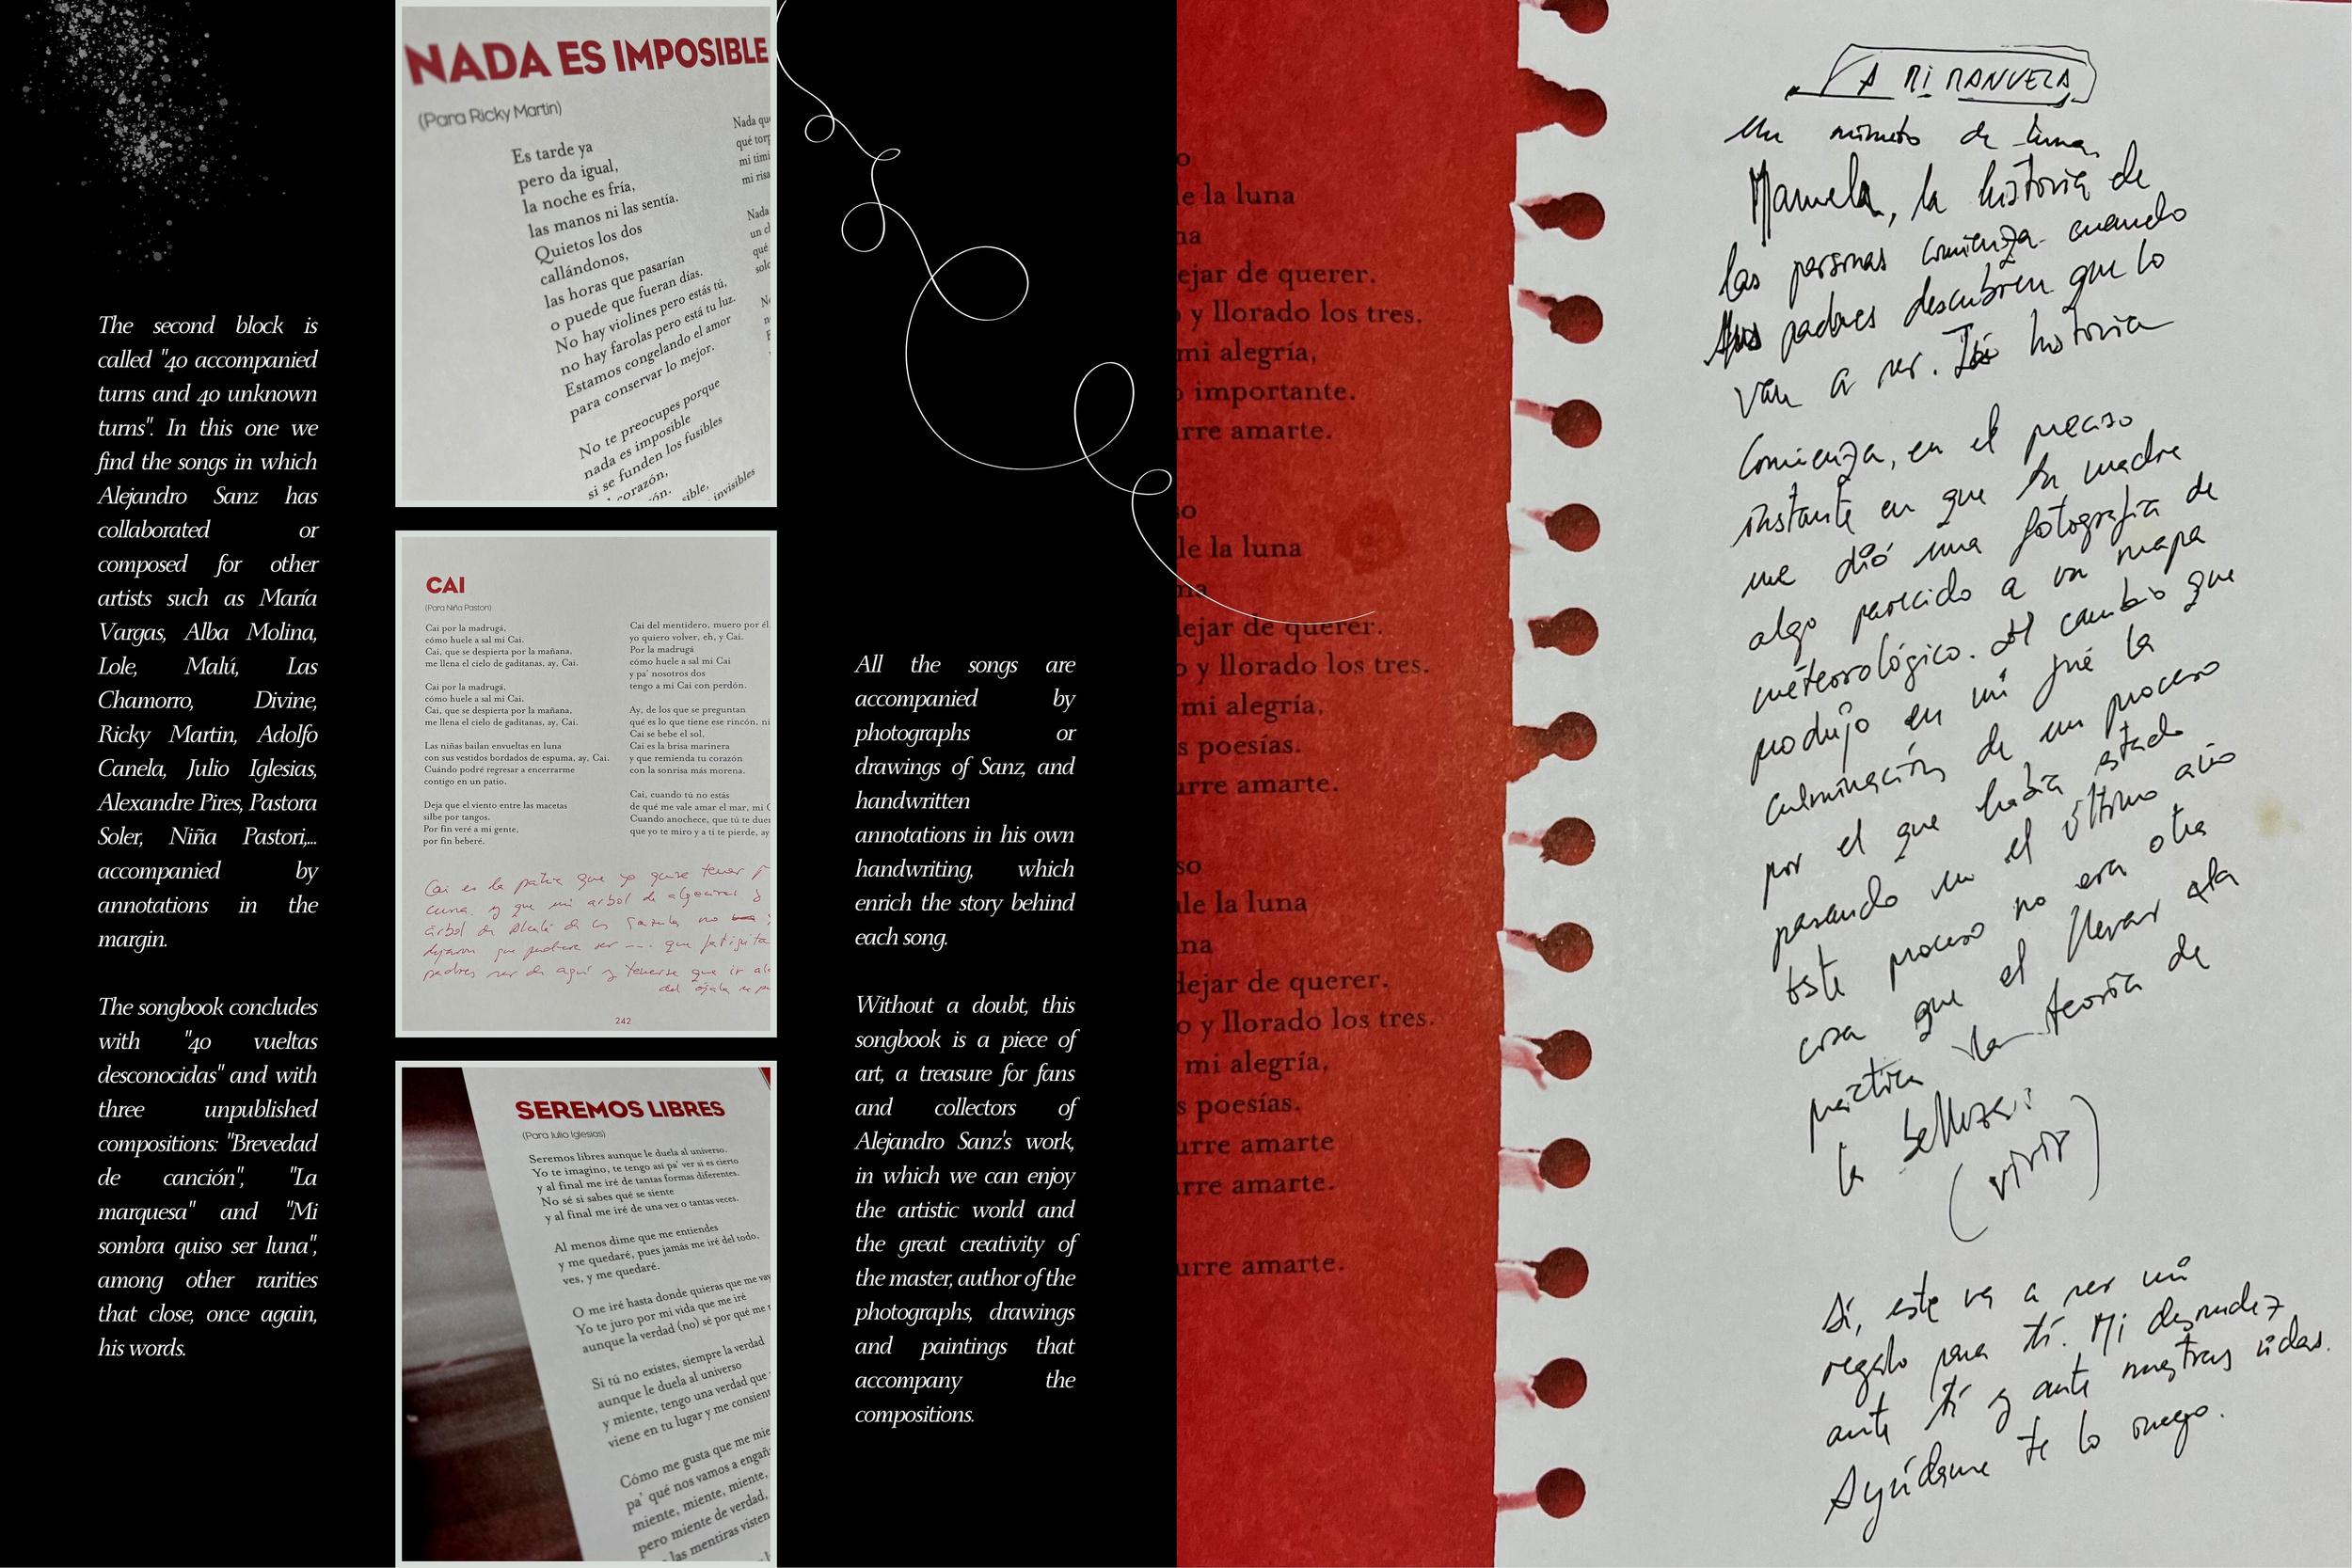 The second block is
called "40 accompanied
turns and 40 unknown
turns". In this one we
find the songs in which
Alejandro Sanz has
collaborated or
composed for other
artists such as María
Vargas, Alba Molina,
Lole, Malú, Las
Chamorro, Divine,
Ricky Martin, Adolfo
Canela, Julio Iglesias,
Alexandre Pires, Pastora
Soler, Niña Pastori,...
accompanied by
annotations in the
margin.
The songbook concludes
with "40 vueltas
desconocidas" and with
three unpublished
compositions: "Brevedad
de canción", "La
marquesa" and "Mi
sombra quiso ser luna",
among other rarities
that close, once again,
his words.
NADA ES IMPOSIBLE
(Para Ricky Martin)
Es tarde ya
pero da igual,
la noche es fría,
las manos ni las sentía.
Quietos los dos
callándonos,
las horas que pasarían
o puede que fueran días.
No hay violines pero estás tú,
no hay farolas pero está tu luz.
Estamos congelando el amor
para conservar lo mejor.
No te preocupes porque
nada es imposible
si se funden los fusibles
corazón,
invisibles
Nada
mi
mi risa
Nada
CAI
(Para Niña Pastori)
Cai por la madrugá,
cómo huele a sal mi Cai.
Cai, que se despierta por la mañana,
me llena el cielo de gaditanas, ay, Cai.
Cai por la madrugá,
cómo huele a sal mi Cai.
Cai, que se despierta por la mañana,
me llena el cielo de gaditanas, ay, Cai.
Las niñas bailan envueltas en luna
con sus vestidos bordados de espuma, ay, Cai.
Cuándo podré regresar a encerrarme
contigo en un patio.
Deja que el viento entre las macetas
silbe por tangos.
Por fin veré a mi gente,
por fin beberé.
Cai del mentidero, muero por él
yo quiero volver, eh, y Cai.
Por la madrugá
cómo huele a sal mi Cai
y pa' nosotros dos
tengo a mi Cai con perdón.
Ay, de los que se preguntan
qué es lo que tiene ese rincón, ni
Cai se bebe el sol,
Cai es la brisa marinera
y que remienda tu corazón
con la sonrisa más morena.
Cai, cuando tú no estás
de qué me vale amar el mar, mi
Cuando anochece, que tú te
que yo te miro y a ti te pierde, ay
Cai es la patria que yo quise tener
cuna, y que mi arbol de algeciras
árbol de Alcalá de los Gazules no
que pudiera ser --- que
padres ser de aquí y tenerse que ir
242
SEREMOS LIBRES
(Para Julio Iglesias)
Seremos libres aunque le duela al universo.
Yo te imagino, te tengo así pa' ver si es cierto
y al final me iré de tantas formas diferentes.
No sé si sabes qué se siente
y al final me iré de una vez o tantas veces.
Al menos dime que me entiendes
y me quedaré, pues jamás me iré del todo,
ves, y me quedaré.
O me iré hasta donde quieras que me
Yo te juro por mi vida que me iré
aunque la verdad (no) sé por qué me
Si tú no existes, siempre la verdad
aunque le duela al universo
y miente, tengo una verdad que
viene en tu lugar y me
Cómo me gusta que me
pa' qué nos vamos a
miente, miente, miente,
pero miente de verdad,
las mentiras visten
All the songs are
accompanied by
photographs or
drawings of Sanz, and
handwritten
annotations in his own
handwriting, which
enrich the story behind
each song.
Without a doubt, this
songbook is a piece of
art, a treasure for fans
and collectors of
Alejandro Sanz's work,
in which we can enjoy
the artistic world and
the great creativity of
the master, author of the
photographs, drawings
and paintings that
accompany the
compositions.
o
e la luna
na
ejar de querer.
y llorado los tres.
mi alegría,
importante.
rre amarte.
so
le la luna
na
lejar de querer.
o y llorado los tres.
mi alegría,
s poesías.
urre amarte.
so
ale la luna
na
dejar de querer.
o y llorado los tres.
mi alegría,
s poesías.
urre amarte
rre amarte.
urre amarte.
A MI MANUELA
Un minuto de
Manuela, la historia de
las personas comienza cuando
sus padres descubren que lo
van a ser. historia
Comienza, en el preciso
instante en que tu madre
me dió una fotografía de
algo parecido a un mapa
meteorológico. El cambio que
produjo en mí fué la
culminación de un proceso
por el que había estado
pasando en el último año
Este proceso no era otra
cosa que el llevar a la
práctica la teoría de
la belleza:
(vivir)
Sí, este va a ser mi
regalo para tí. Mi desnudez
ante tí y ante nuestras vidas.
Ayúdame te lo ruego.